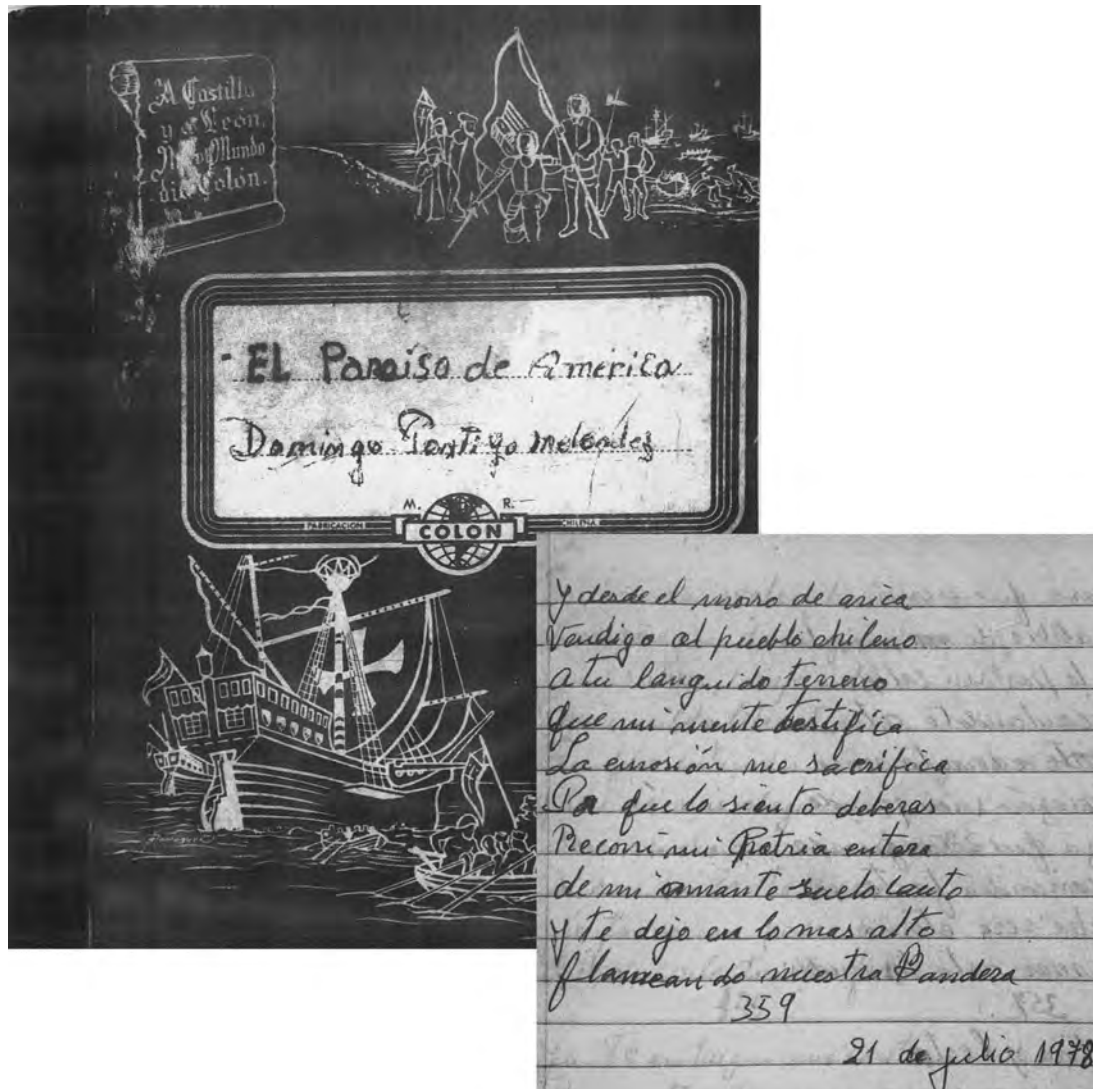 A Castilla
y a León,
Mundo
dió Colón.
EL Paraiso de America
Domingo Pontigo melendes
M. R.
FABRICACION COLON CHILENA
y desde el morro de arica
Vendigo al pueblo chileno
a tu languido terreno
que mi mente testifica
La emosión me sacrifica
Por que lo siento deberas
Recorri mi Patria entera
de mi amante suelo canto
y te dejo en lo mas alto
flameando nuestra Bandera
359
21 de julio 1978